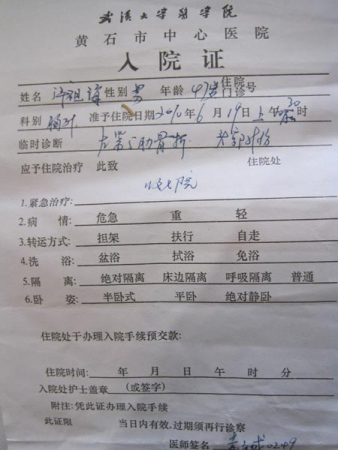 武汉大学医学院
黄石市中心医院
入院证
姓名 性别 男 年龄 47岁 住院门诊号
科别 准予住院日期 2010年6月19日上 时
临时诊断 左第 肋骨折
应予住院治疗 此致 住院处
1.紧急治疗:
2.病 情: 危急 重 轻
3.转运方式: 担架 扶行 自走
4.洗 浴: 盆浴 拭浴 免浴
5.隔 离: 绝对隔离 床边隔离 呼吸隔离 普通
6.卧 姿: 半卧式 平卧 绝对静卧
住院处于办理入院手续预交款:
住院时间: 年 月 日 午 时 分
入院处护士盖章 (或签字)
附注:凭此证办理入院手续
此证限 当日内有效,过期须再行诊察
医师签名